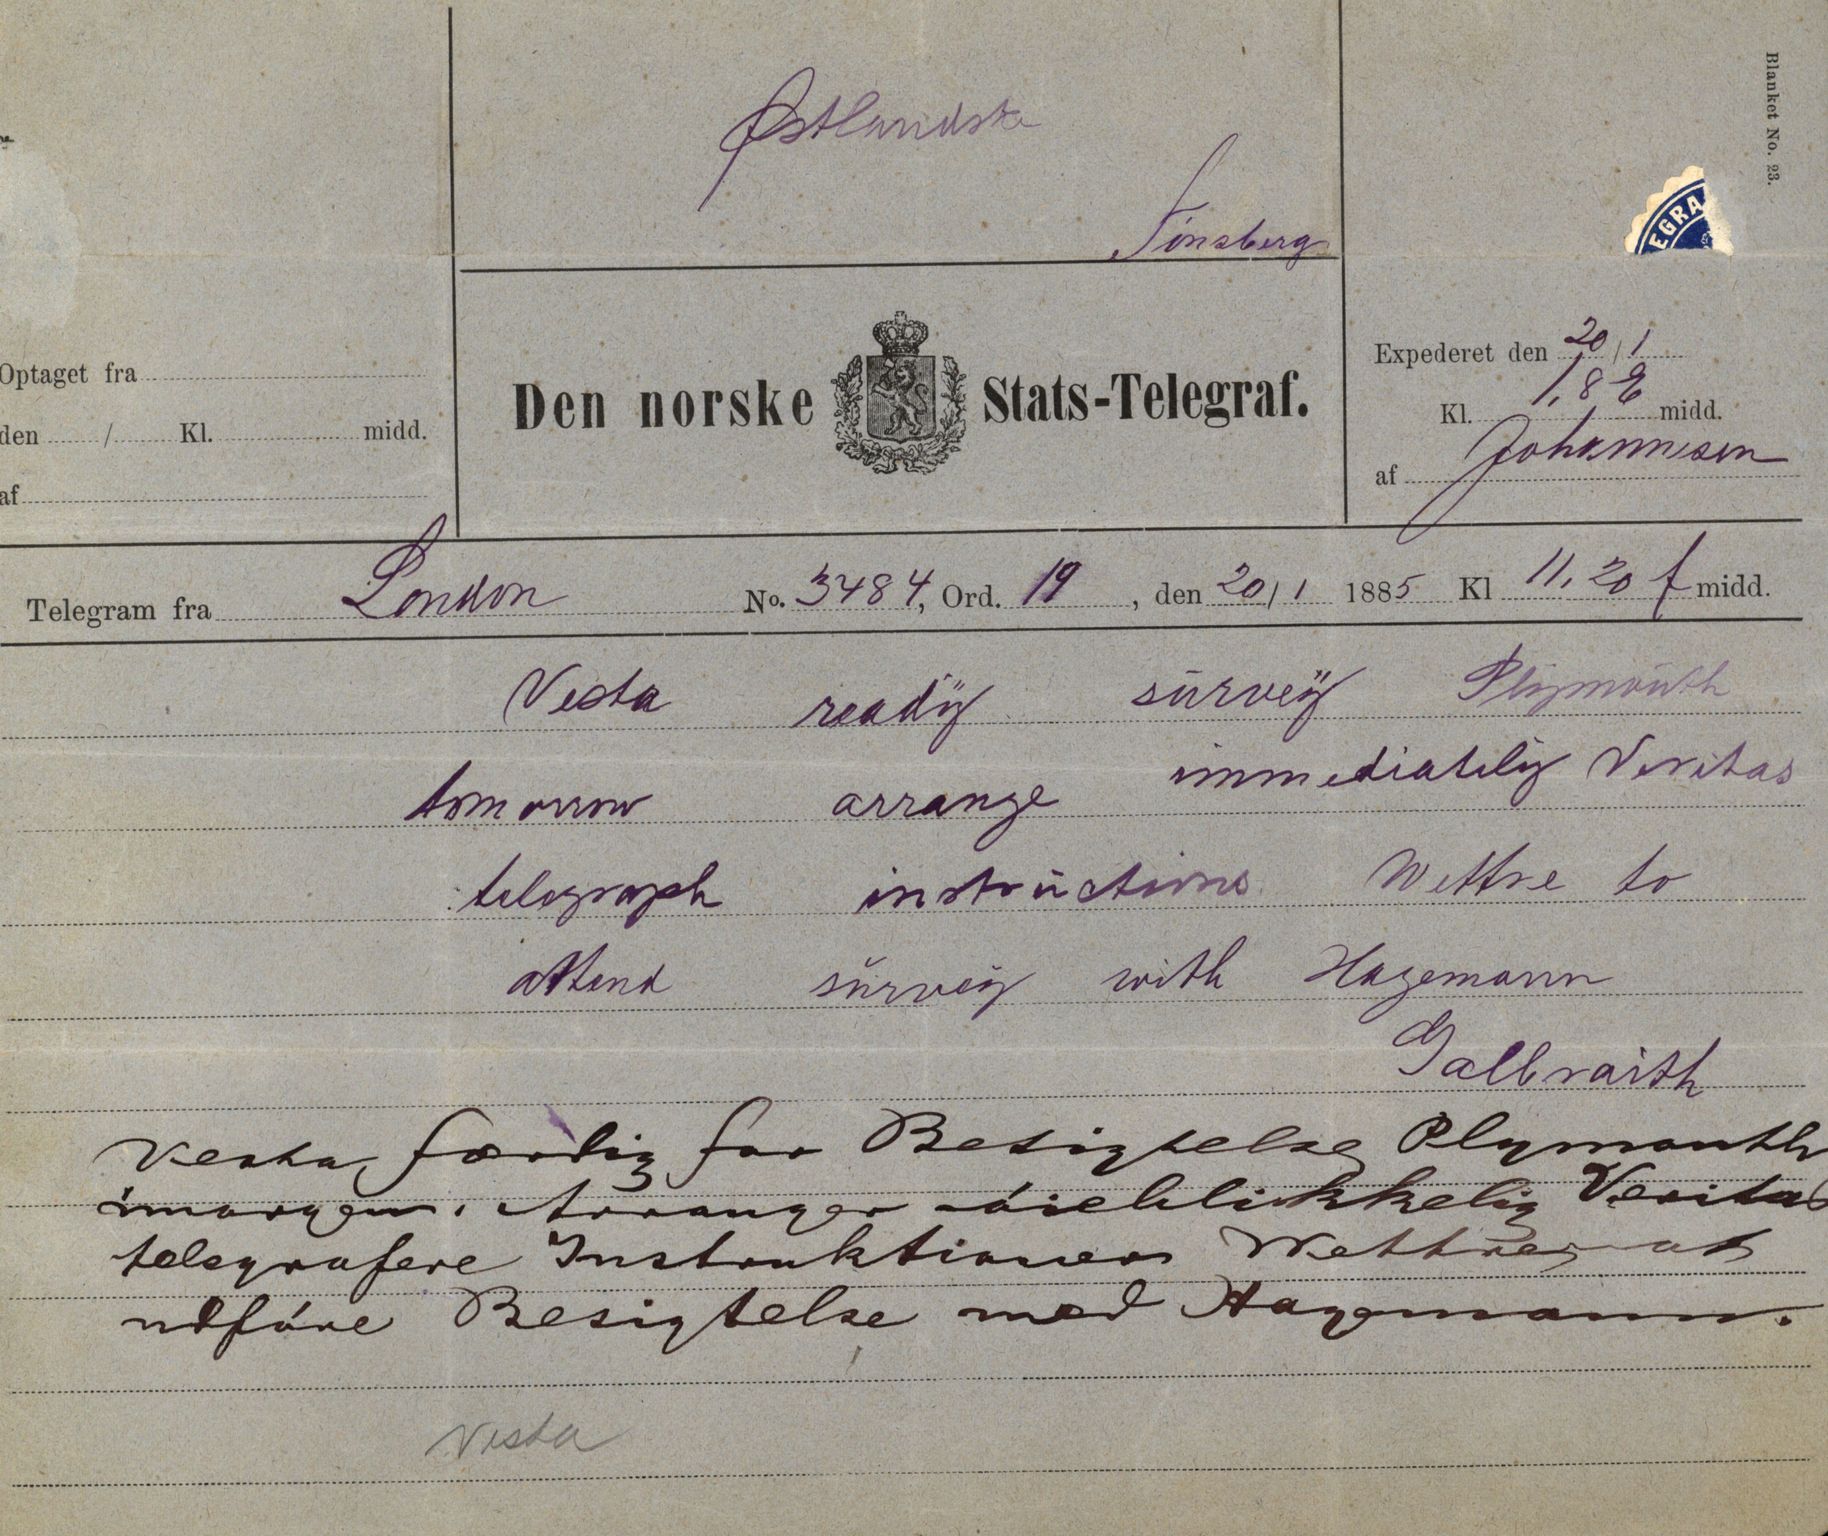 Blanket No. 23.
Østlandske
Tönsberg
EGRA
Optaget fra
den / Kl. midd.
af
Den norske Stats-Telegraf.
Expederet den 20/1
Kl. 1,8 E midd.
af Johannesen
Telegram fra London No. 3484, Ord. 19, den 20/1 1885 Kl 11.20 f midd.
Vesta ready survey Plymouth
tomorrow arrange immediately Veritas
telegraph instructions Wettre to
attend survey with Hagemann
Galbraith
Vesta, færdig for Besigtelse Plymouth
imorgen. Arranger øieblikkelig Veritas
telegrafere Instruktioner Wettre, at
udføre Besigtelse med Hagemann.
Vesta